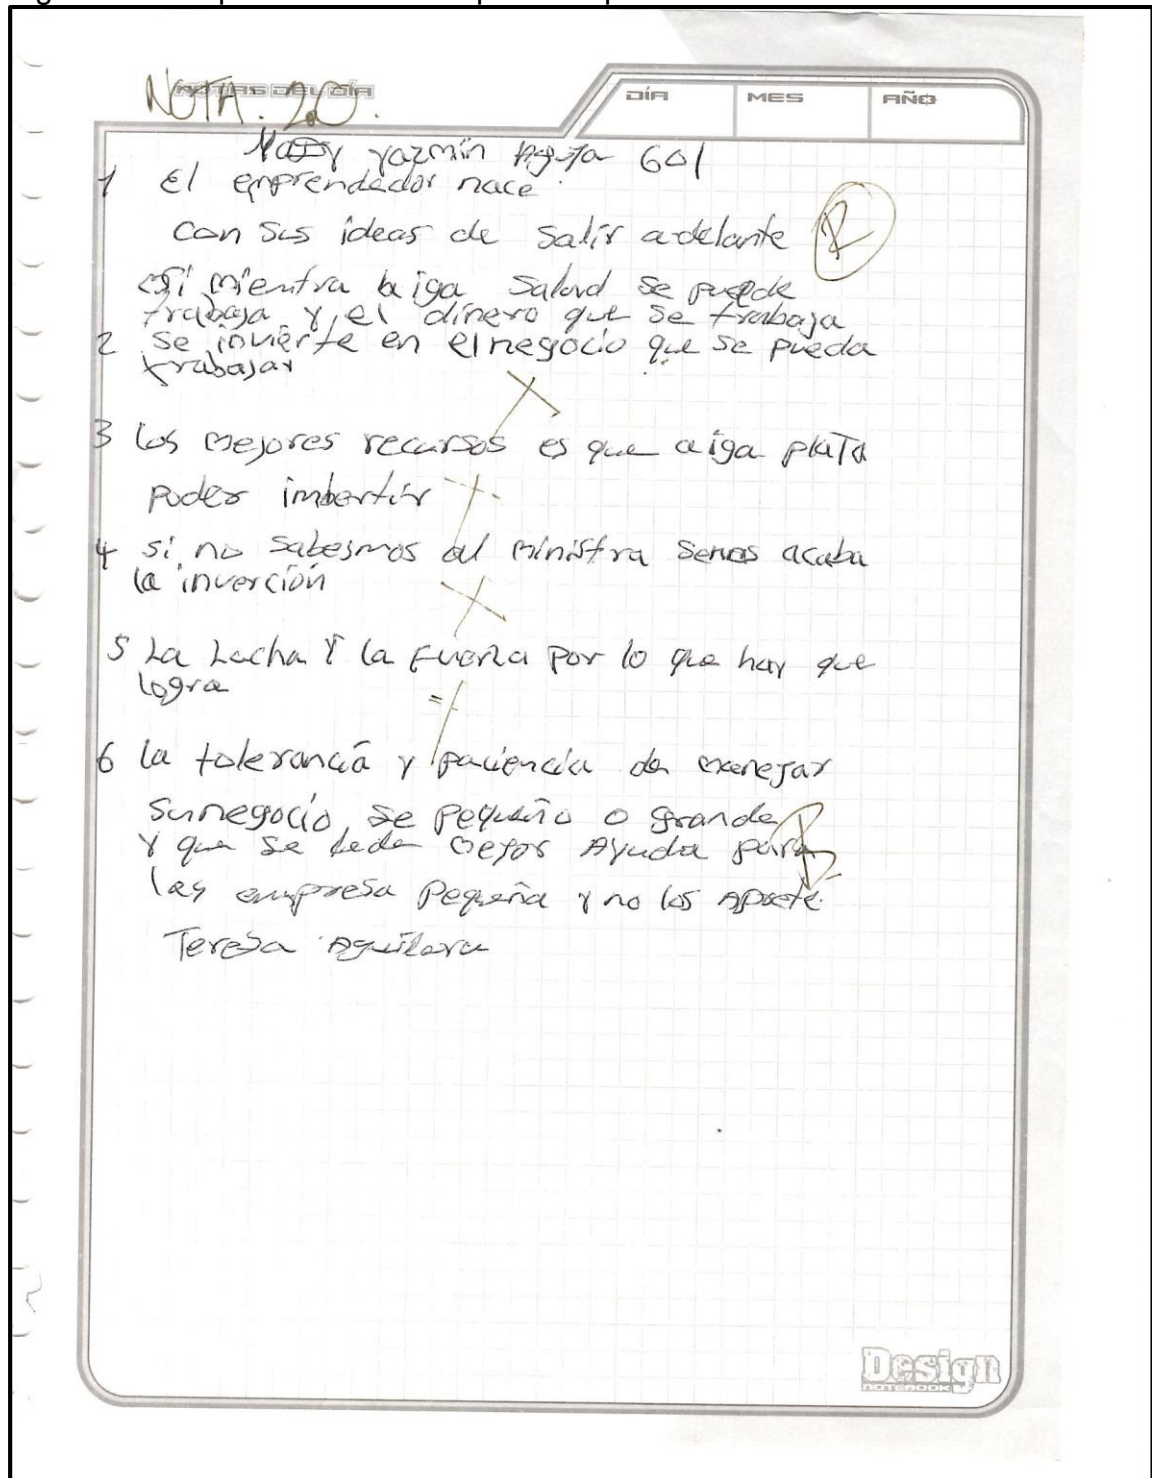 NOTA. 2.0.
NOTAS DEL DÍA
DÍA MES AÑO
yazmin 601
1 El emprendedor nace
con sus ideas de salir adelante
asi mientra aiga salud se puede
trabaja y el dinero que se trabaja
2 se invierte en el negocio que se pueda
trabajar
3 los mejores recursos es que aiga plata
poder imbertir
4 si no sabesmos al ministra senos acaba
la inverción
5 La Lucha Y la fuerza por lo que hay que
logra
6 la tolerancia y paciencia de manejar
sunegocio se pequeño o grande
y que se dede mejor Ayuda para
las empresa pequeña y no los apriete
Teresa Aguilera
Design
NOTEBOOK